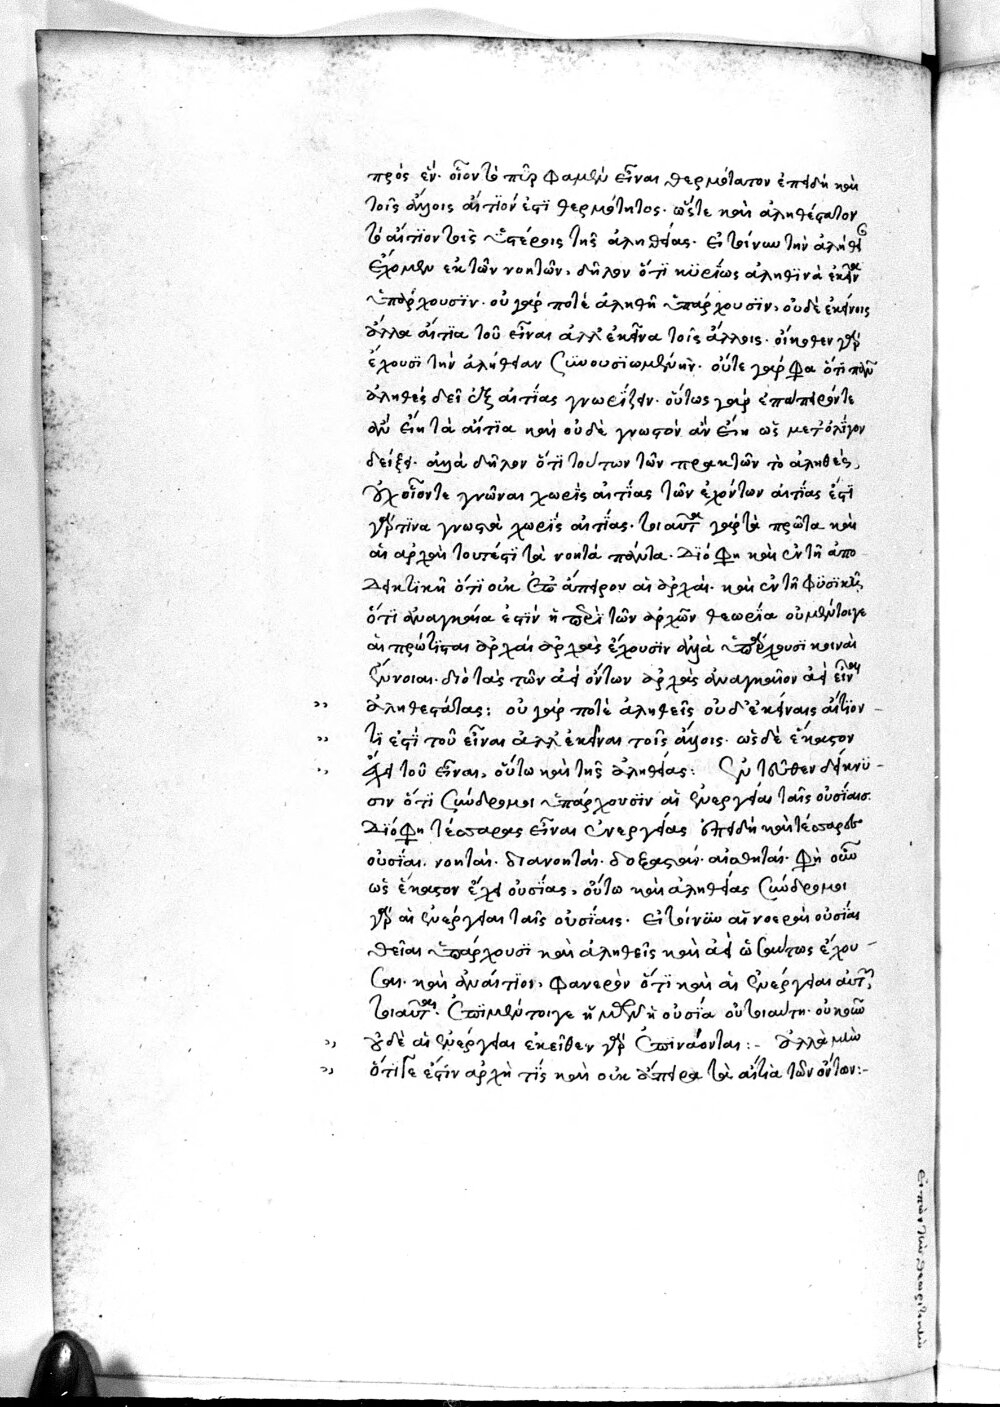 πρὸς ἕν. οἷον τὸ πῦρ φαμὲν εἶναι θερμότατον ἐπειδὴ καὶ
τοῖς ἄλλοις αἴτιόν ἐστι θερμότητος. ὥστε καὶ ἀληθέστατον
τὸ αἴτιον τοῖς ὑστέροις τῆς ἀληθείας. εἰ τοίνυν τὴν ἀλήθει
ἔχομεν ἐκ τῶν νοητῶν, δῆλον ὅτι κυρίως ἀληθινὰ ἐκεῖνα
ὑπάρχουσιν. οὐ γάρ ποτὲ ἀληθῆ ὑπάρχουσιν, οὐδὲ ἐκείνοις
ἄλλα αἴτια τοῦ εἶναι ἀλλ' ἐκεῖνα τοῖς ἄλλοις. οἴκοθεν γὰρ
ἔχουσι τὴν ἀλήθειαν συνουσιωμένην. οὔτε γάρ φησιν ὅτι πᾶν
ἀληθὲς δεῖ ἐξ αἰτίας γνωρίζειν. οὕτως γὰρ ἐπ' ἄπειρόν τε
ἂν εἴη τὰ αἴτια καὶ οὐδὲ γνωστὸν ἂν εἴη ὡς μετ' ὀλίγον
δείξει. ἀλλὰ δῆλον ὅτι τούτων τῶν πρακτῶν τὸ ἀληθὲς,
οὐχ οἷόν τε γνῶναι χωρὶς αἰτίας τῶν ἐχόντων αἰτίας ἐστὶ
γάρ τινα γνωστὰ χωρὶς αἰτίας. τοιαῦτα γὰρ τὰ πρῶτα καὶ
αἱ ἀρχαὶ τουτέστι τὰ νοητὰ πάντα. Διό φησι καὶ ἐν τῇ ἀπο
δεικτικῇ ὅτι οὐκ ἐπ' ἄπειρον αἱ ἀρχαί. καὶ ἐν τῇ φυσικῇ
ὅτι ἀναγκαία ἐστὶν ἡ περὶ τῶν ἀρχῶν θεωρία οὐ μέντοιγε
αἱ πρώτισται ἀρχαὶ ἀρχὰς ἔχουσιν ἀλλὰ ὑπάρχουσι κοιναὶ
ἔννοιαι. διὸ τὰς τῶν ἀεὶ ὄντων ἀρχὰς ἀναγκαῖον ἀεὶ εἶναι
ἀληθεστάτας: οὐ γάρ ποτὲ ἀληθεῖς οὐδ' ἐκείναις αἴτιον
τί ἐστι τοῦ εἶναι ἀλλ' ἐκεῖναι τοῖς ἄλλοις. ὡς δὲ ἕκαστον
ἔχει τοῦ εἶναι, οὕτω καὶ τῆς ἀληθείας: ἐντεῦθεν δείκνυ
σιν ὅτι σύνδρομοι ὑπάρχουσιν αἱ ἐνέργειαι ταῖς οὐσίαις.
Διό φησι τέσσαρας εἶναι ἐνεργείας ἐπειδὴ καὶ τέσσαρες
οὐσίαι. νοηταί. διανοηταί. δοξασταί. αἰσθηταί. φησὶ οὖν
ὡς ἕκαστον ἔχει οὐσίας, οὕτω καὶ ἀληθείας σύνδρομοι
γὰρ αἱ ἐνέργειαι ταῖς οὐσίαις. εἰ τοίνυν αἱ νοεραὶ οὐσίαι
θεῖαι ὑπάρχουσι καὶ ἀληθεῖς καὶ ἀεὶ ὡσαύτως ἔχου
σαι. καὶ ἀναίτιοι, φανερὸν ὅτι καὶ αἱ ἐνέργειαι αὐτῶν
τοιαῦται. ἐπὶ μέντοιγε ἡμῶν ἡ οὐσία οὐ τοιαύτη. οὐκοῦν
οὐδὲ αἱ ἐνέργειαι ἐκεῖθεν γὰρ :- ἀλλὰ μὴν
ὅτι γε ἐστὶν ἀρχή τις καὶ οὐκ ἄπειρα τὰ αἴτια τῶν ὄντων:-